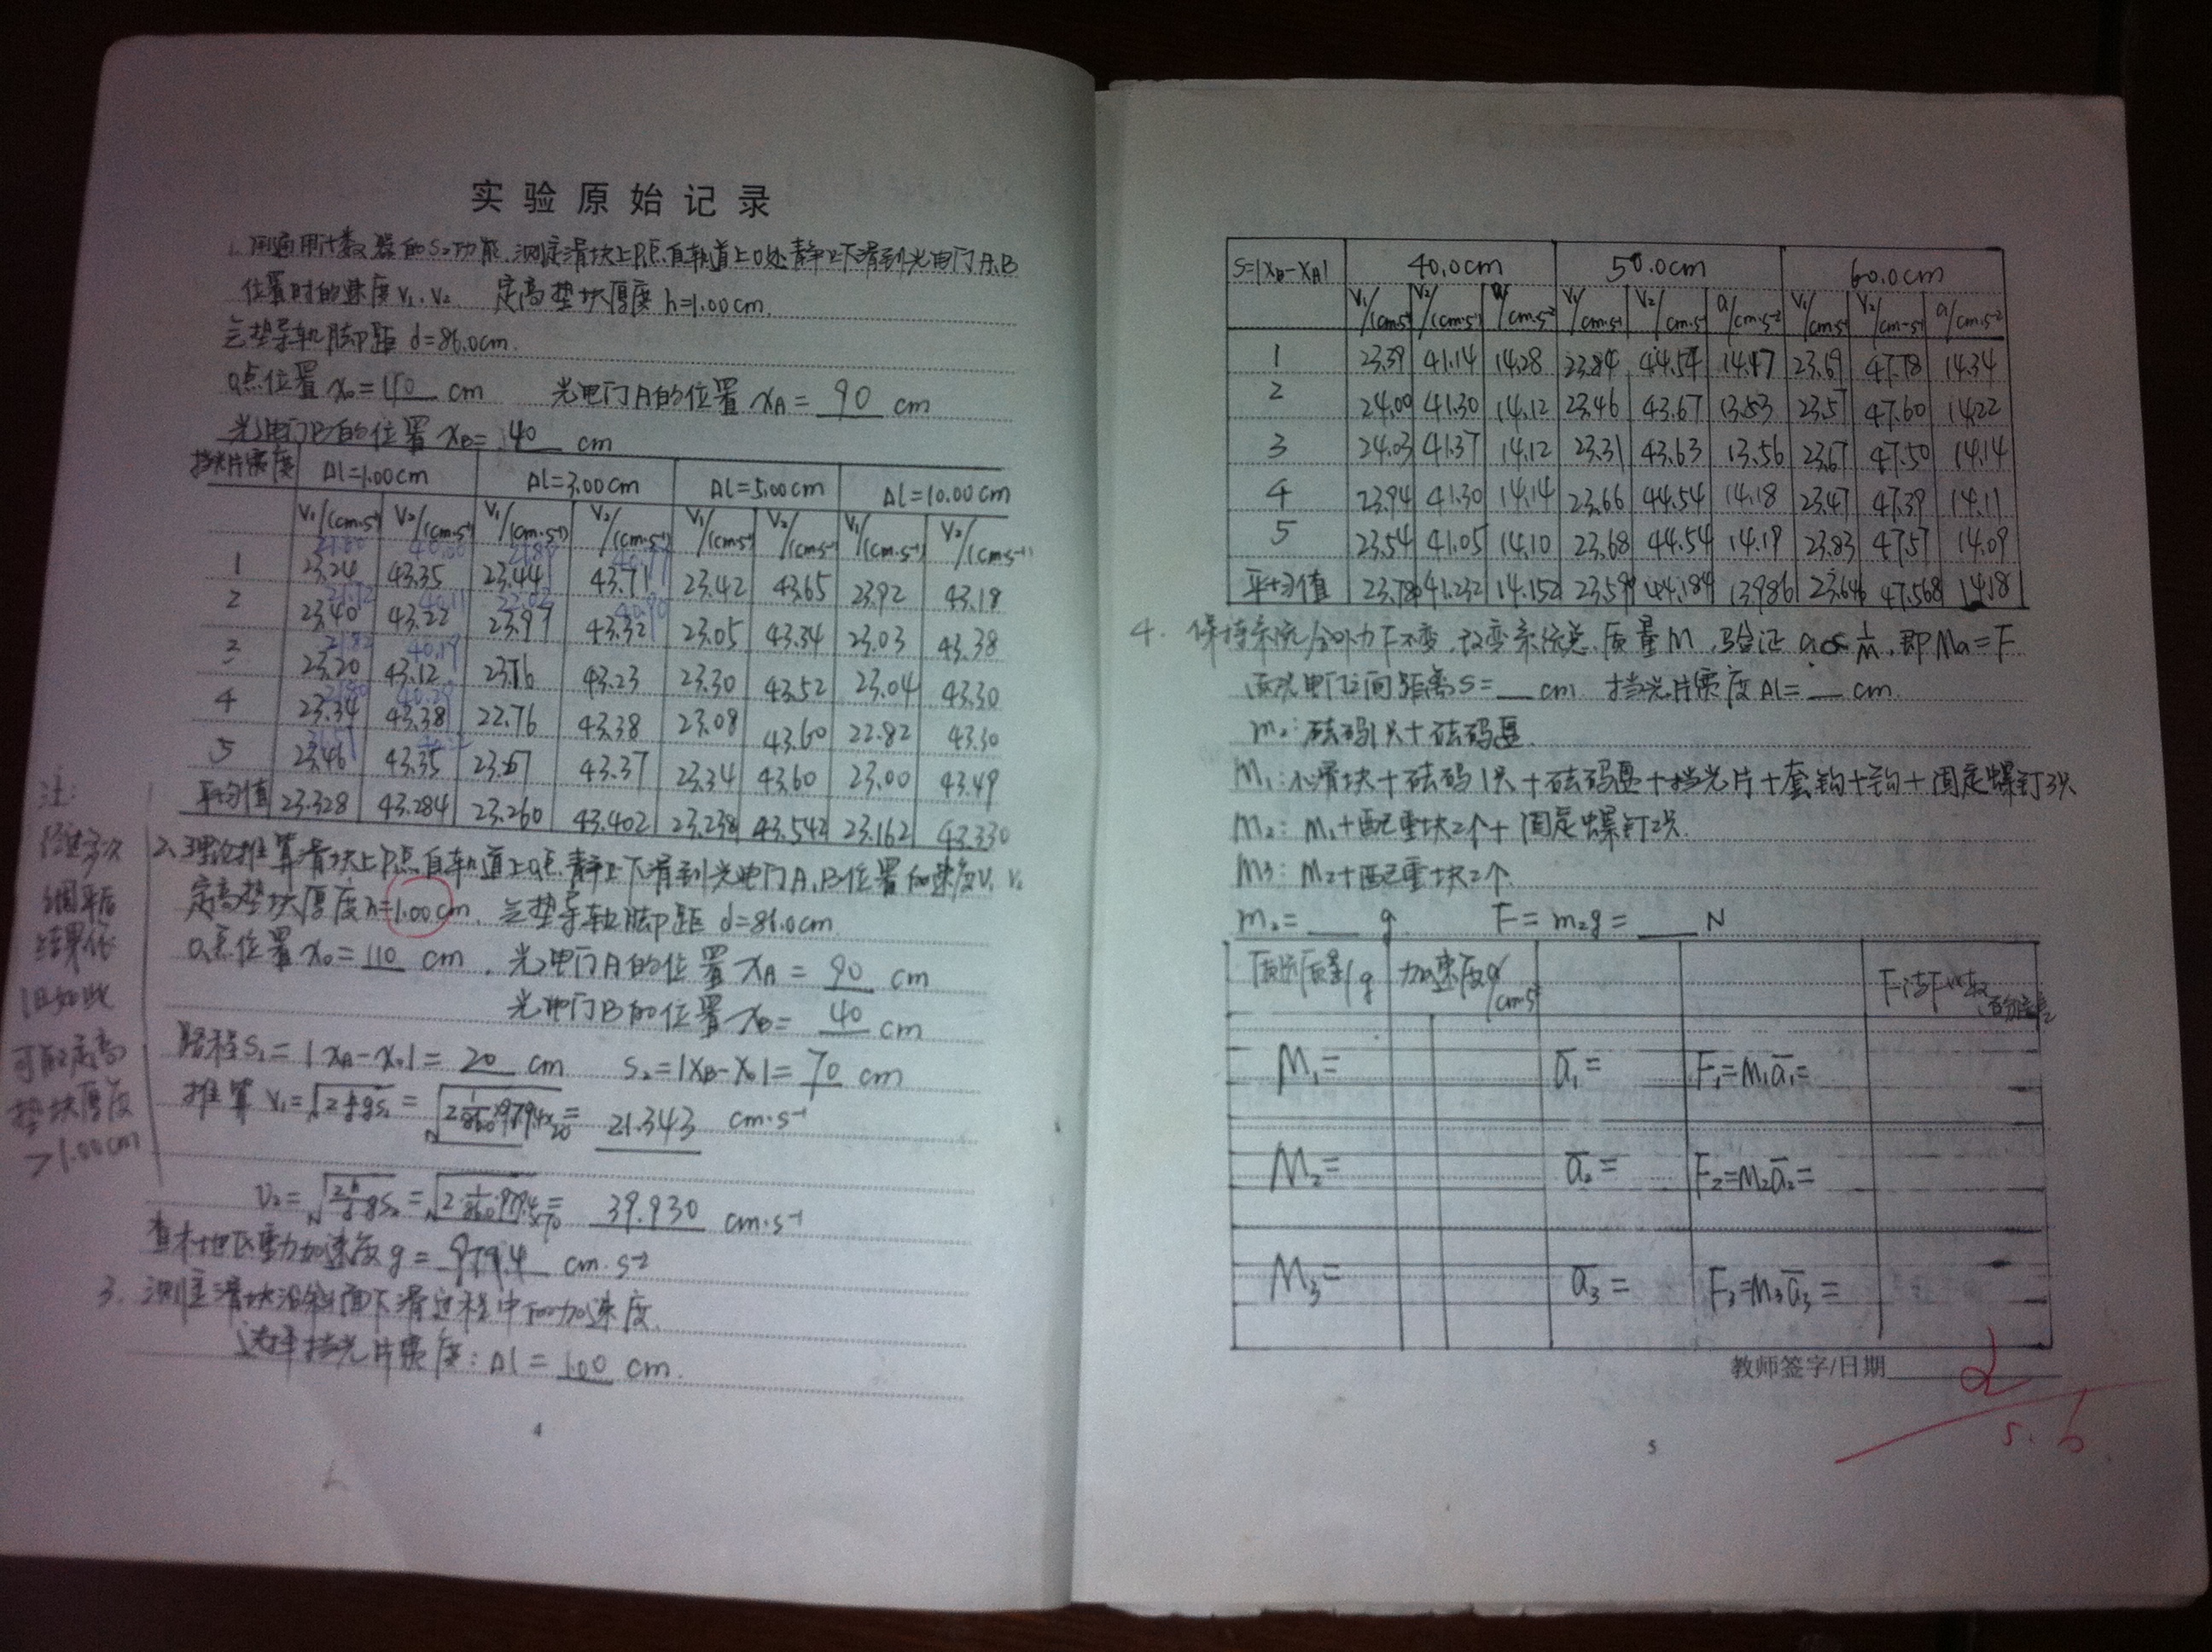 实验原始记录
1. 用通用计数器的S2功能,测定滑块上P点自轨道上O处静止下滑到光电门A、B
位置时的速度V1、V2. 定高垫块厚度h=1.00cm.
气垫导轨脚距 d=86.0cm.
O点位置x0=110 cm 光电门A的位置xA=90 cm
光电门B的位置xB=40 cm
挡光片宽度 Δl=1.00cm Δl=3.00cm Δl=5.00cm Δl=10.00cm
V1/(cm·s-1) V2/(cm·s-1) V1/(cm·s-1) V2/(cm·s-1) V1/(cm·s-1) V2/(cm·s-1) V1/(cm·s-1) V2/(cm·s-1)
1 23.24 43.35 23.44 43.71 23.42 43.65 23.92 43.18
2 23.40 43.22 23.97 43.32 23.05 43.34 23.03 43.38
3 23.20 43.12 23.16 43.23 23.30 43.52 23.04 43.30
4 23.34 43.38 22.76 43.38 23.08 43.60 22.82 43.30
5 23.46 43.35 43.37 23.34 43.60 23.00 43.49
平均值 23.328 43.284 23.260 43.402 23.238 43.542 23.162 43.330
注:
经过多次
调平后
结果依
旧如此
可能定高
垫块厚度
>1.00cm
2、理论推算滑块上P点自轨道上O点静止下滑到光电门A、B位置的速度V1 V2
定高垫块厚度h=1.00cm. 气垫导轨脚距 d=86.0cm.
O点位置x0=110 cm. 光电门A的位置xA=90 cm
光电门B的位置xB=40 cm
路程S1=|xA-x0|=20 cm S2=|xB-x0|=70 cm
推算 V1=√(2h/d gs1)=√(2·1/86.0·979.4×20)=21.343 cm·s-1
V2=√(2h/d gs2)=√(2·1/86.0·979.4×70)=39.930 cm·s-1
查本地区重力加速度g=979.4 cm·s-2
3. 测定滑块沿斜面下滑过程中的加速度.
选择挡光片宽度:Δl=1.00 cm.
4
S=|xB-xA| 40.0cm 50.0cm 60.0cm
V1/(cm·s-1) V2/(cm·s-1) a/cm·s-2 V1/cm·s-1 V2/cm·s-1 a/cm·s-2 V1/cm·s-1 V2/cm·s-1 a/cm·s-2
1 23.39 41.14 14.28 23.84 44.54 14.47 23.69 47.78 14.34
2 24.00 41.30 14.12 23.46 43.67 13.53 23.57 47.60 14.22
3 24.03 41.37 14.12 23.31 43.63 13.56 23.67 47.50 14.14
4 23.94 41.30 14.14 23.66 44.54 14.18 23.47 47.39 14.11
5 23.54 41.05 14.10 23.68 44.54 14.19 23.83 47.57 14.09
平均值 23.78 41.232 14.152 23.59 44.184 13.986 23.646 47.568 14.18
4. 保持系统合外力F不变,改变系统总质量M,验证a∝1/M,即Ma=F
两光电门之间距离S=__cm. 挡光片宽度Δl=__cm.
m2:砝码1只+砝码盘.
M1:小滑块+砝码1只+砝码盘+挡光片+套钩+钩+固定螺钉3只
M2:M1+配重块2个+固定螺钉2只.
M3:M2+配重块2个.
m2=___g. F=m2g=___N
质量/g 加速度a/cm·s-2
M1= a̅1= F1=M1a̅1=
M2= a̅2= F2=M2a̅2=
M3= a̅3= F3=M3a̅3=
教师签字/日期
5.6
5